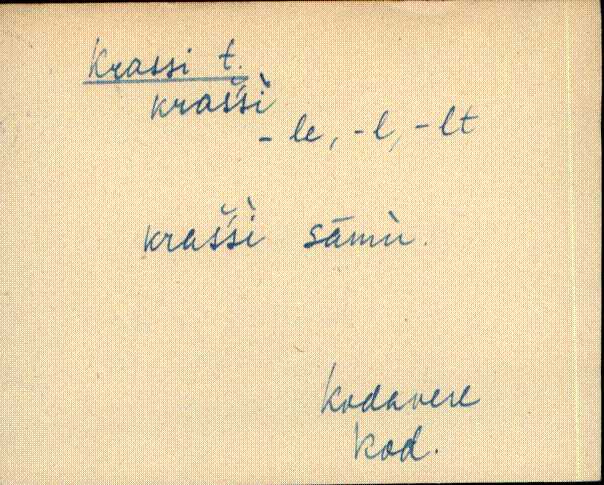 Krassi t.
kraššì̬
-le, -l, -lt
kraššì̬ sāmìi.
Kodavere
Kod.